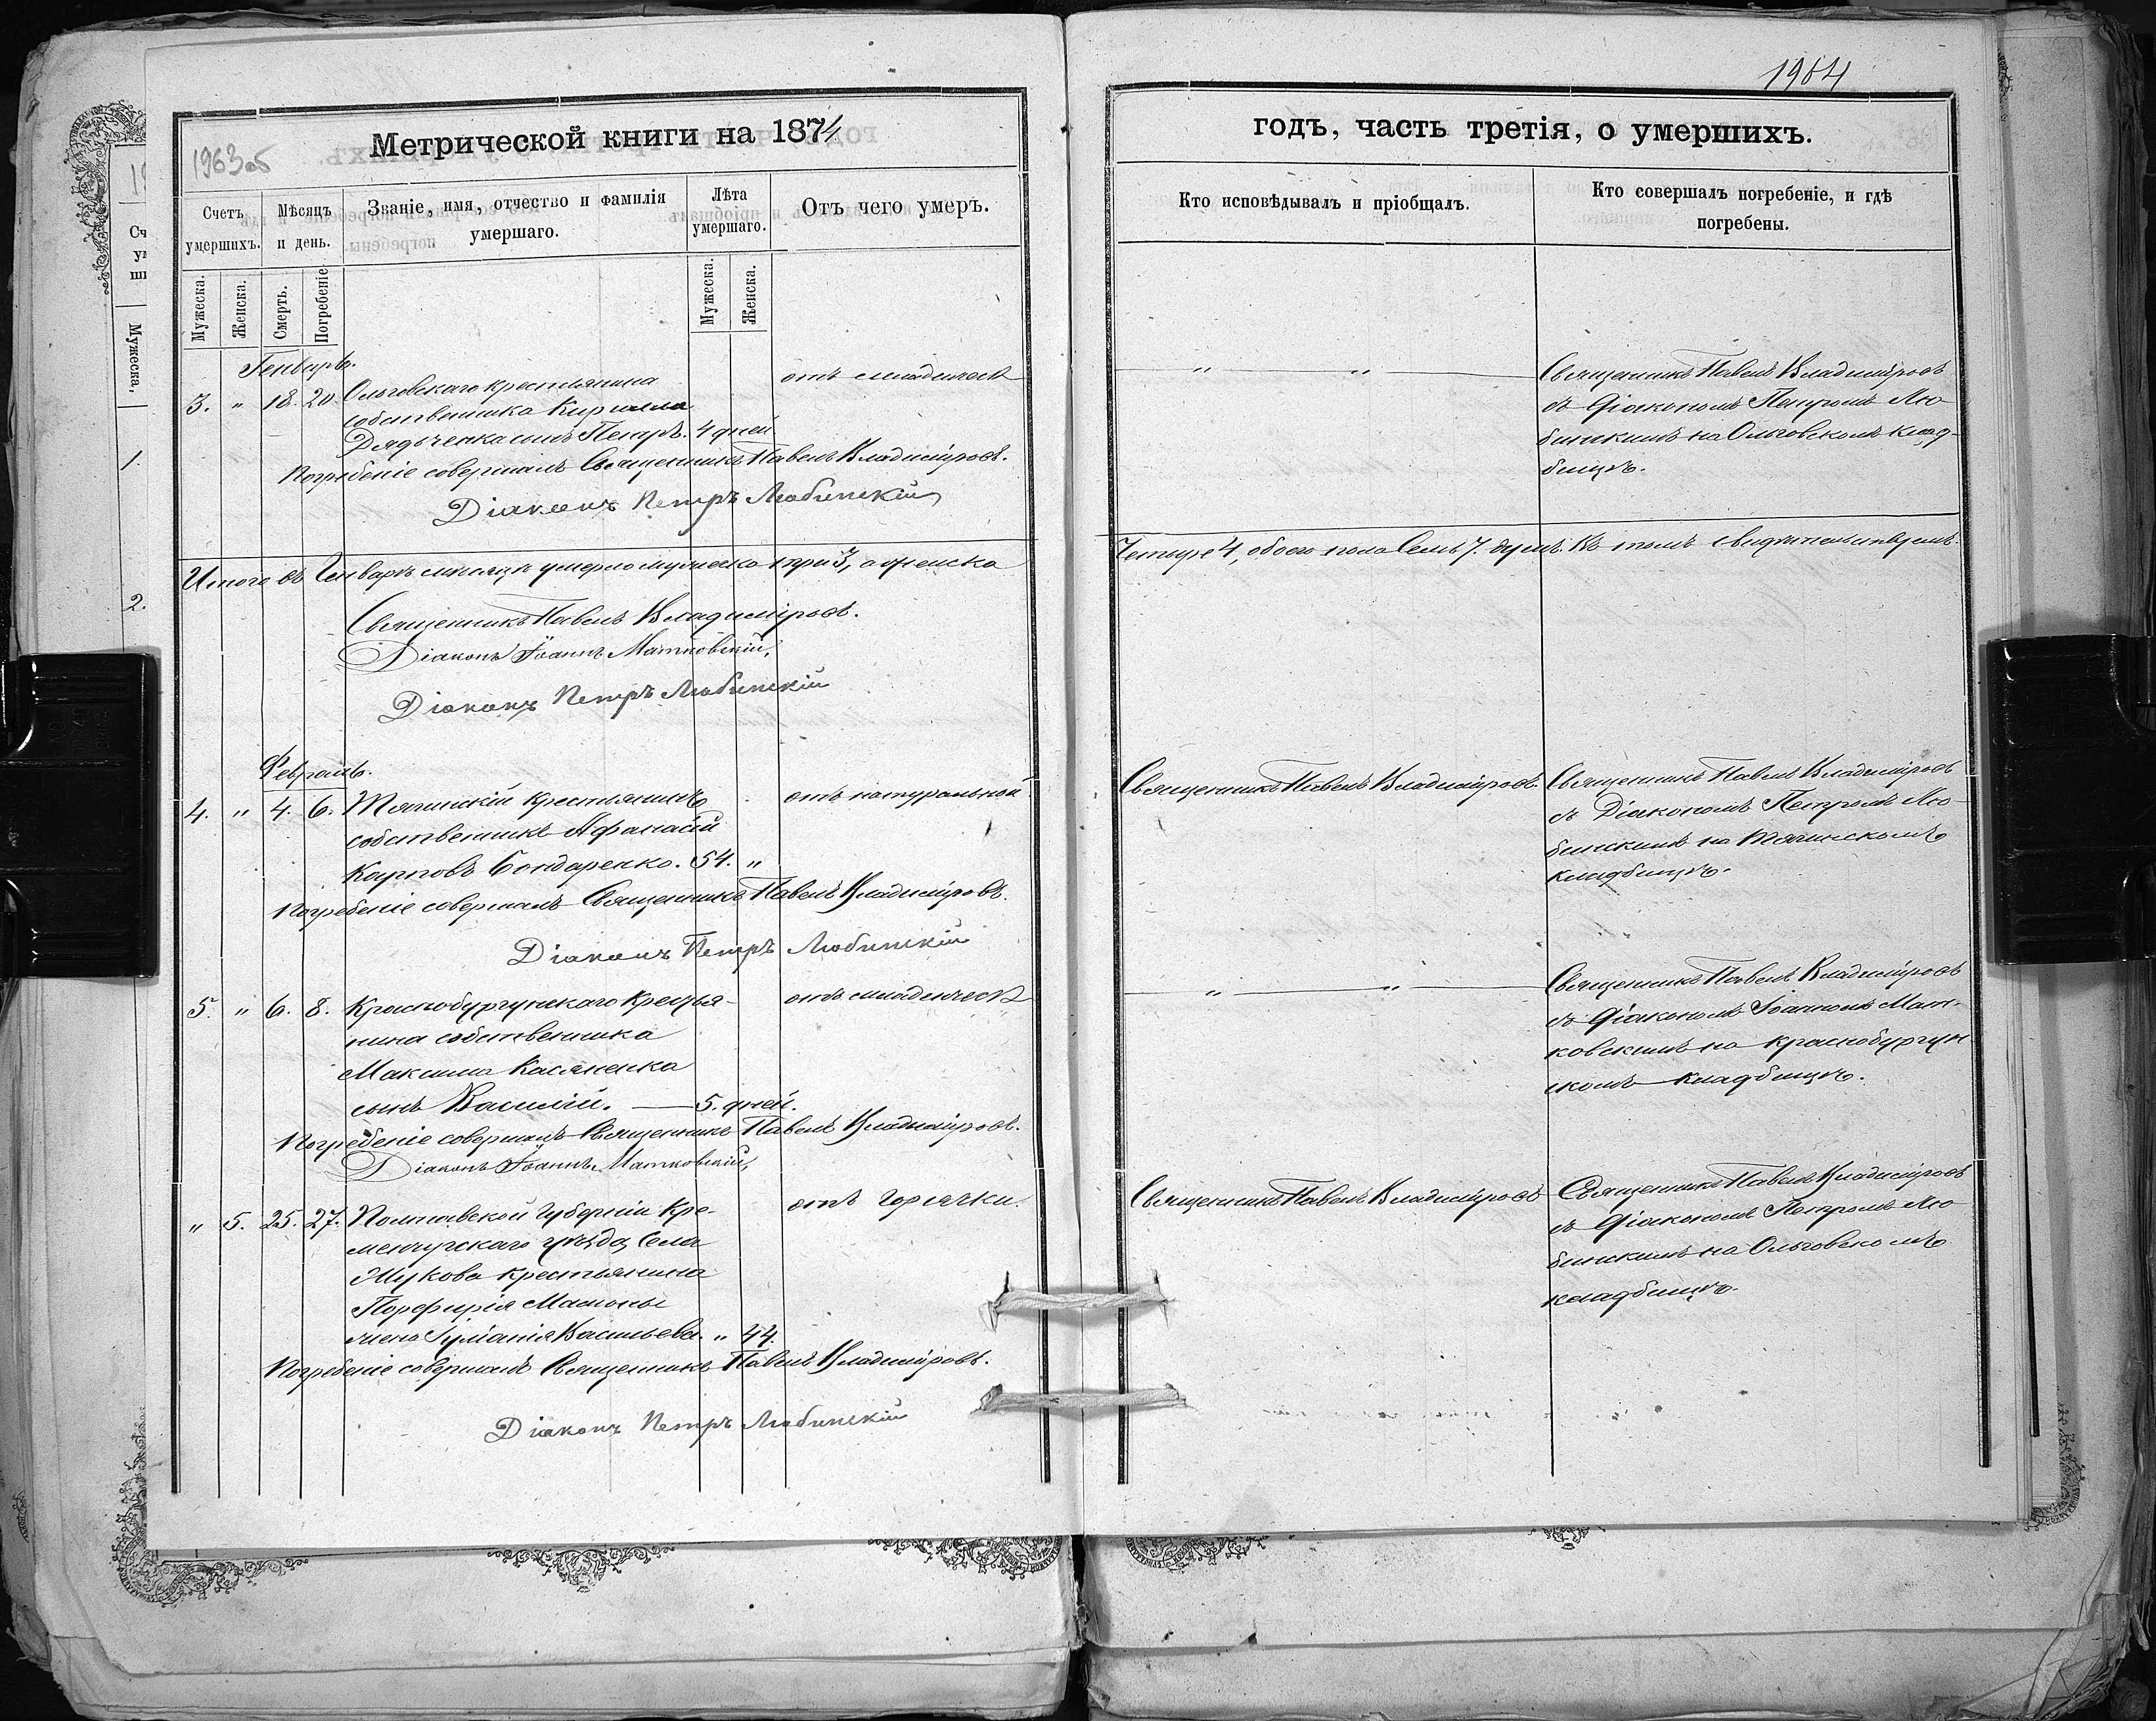 1963об
Метрической книги на 1874
Счетъ умершихъ.
Мѣсяцъ и день.
Званіе, имя, отчество и фамилія умершаго.
Лѣта умершаго.
Отъ чего умеръ.
Мужеска.
Женска.
Смерть.
Погребеніе.
Мужеска.
Женска.
Генварь.
3. " 18. 20. Ольговскаго крестьянина
отъ младенческ
собственника Кирилла
Дядьченка сынъ Петръ. 4 дней
Погребеніе совершалъ Священникъ Павелъ Владиміровъ.
Діаконъ Петръ Любинскій
Итого въ Генварѣ мѣсяцѣ умерло мужеска три 3, а женска
Священникъ Павелъ Владиміровъ.
Діаконъ Іоаннъ Матковскій,
Діаконъ Петръ Любинскій
Февраль.
4. " 4. 6. Тягинскій крестьянинъ
отъ натуральной
собственникъ Афанасій
Карповъ Бондаренко. 54. "
Погребеніе совершалъ Священникъ Павелъ Владиміровъ.
Діаконъ Петръ Любинскій
5. " 6. 8. Краснобургунскаго крестья-
отъ младенческ
нина собственника
Максима Касяненка
сынъ Василій. — 5. дней.
Погребеніе совершалъ Священникъ Павелъ Владиміровъ.
Діаконъ Іоаннъ Матковскій,
" 5. 25. 27. Полтавской Губерніи Кре-
отъ горячки.
менчугскаго уѣзда, Села
Жукова крестьянина
Порфирія
жена Васильева. " 44.
Погребеніе совершалъ Священникъ Павелъ Владиміровъ.
Діаконъ Петръ Любинскій
1964
годъ, часть третія, о умершихъ.
Кто исповѣдывалъ и пріобщалъ.
Кто совершалъ погребеніе, и гдѣ погребены.
" "
Священникъ Павелъ Владиміровъ
съ Діакономъ Петромъ Лю-
бинскимъ на Ольговскомъ клад-
бищѣ.
Четыре 4, обоего пола Семь 7. душъ. Въ томъ свидѣтельствуемъ.
Священникъ Павелъ Владиміровъ.
Священникъ Павелъ Владиміровъ
съ Діакономъ Петромъ Лю-
бинскимъ на Тягинскомъ
кладбищѣ.
" "
Священникъ Павелъ Владиміровъ
съ Діакономъ Іоанномъ Мат-
ковскимъ на Краснобургун
скомъ кладбищѣ.
Священникъ Павелъ Владиміровъ
Священникъ Павелъ Владиміровъ
съ Діакономъ Петромъ Лю
бинскимъ на Ольговскомъ
кладбищѣ.
Мужеска.
1.
2.